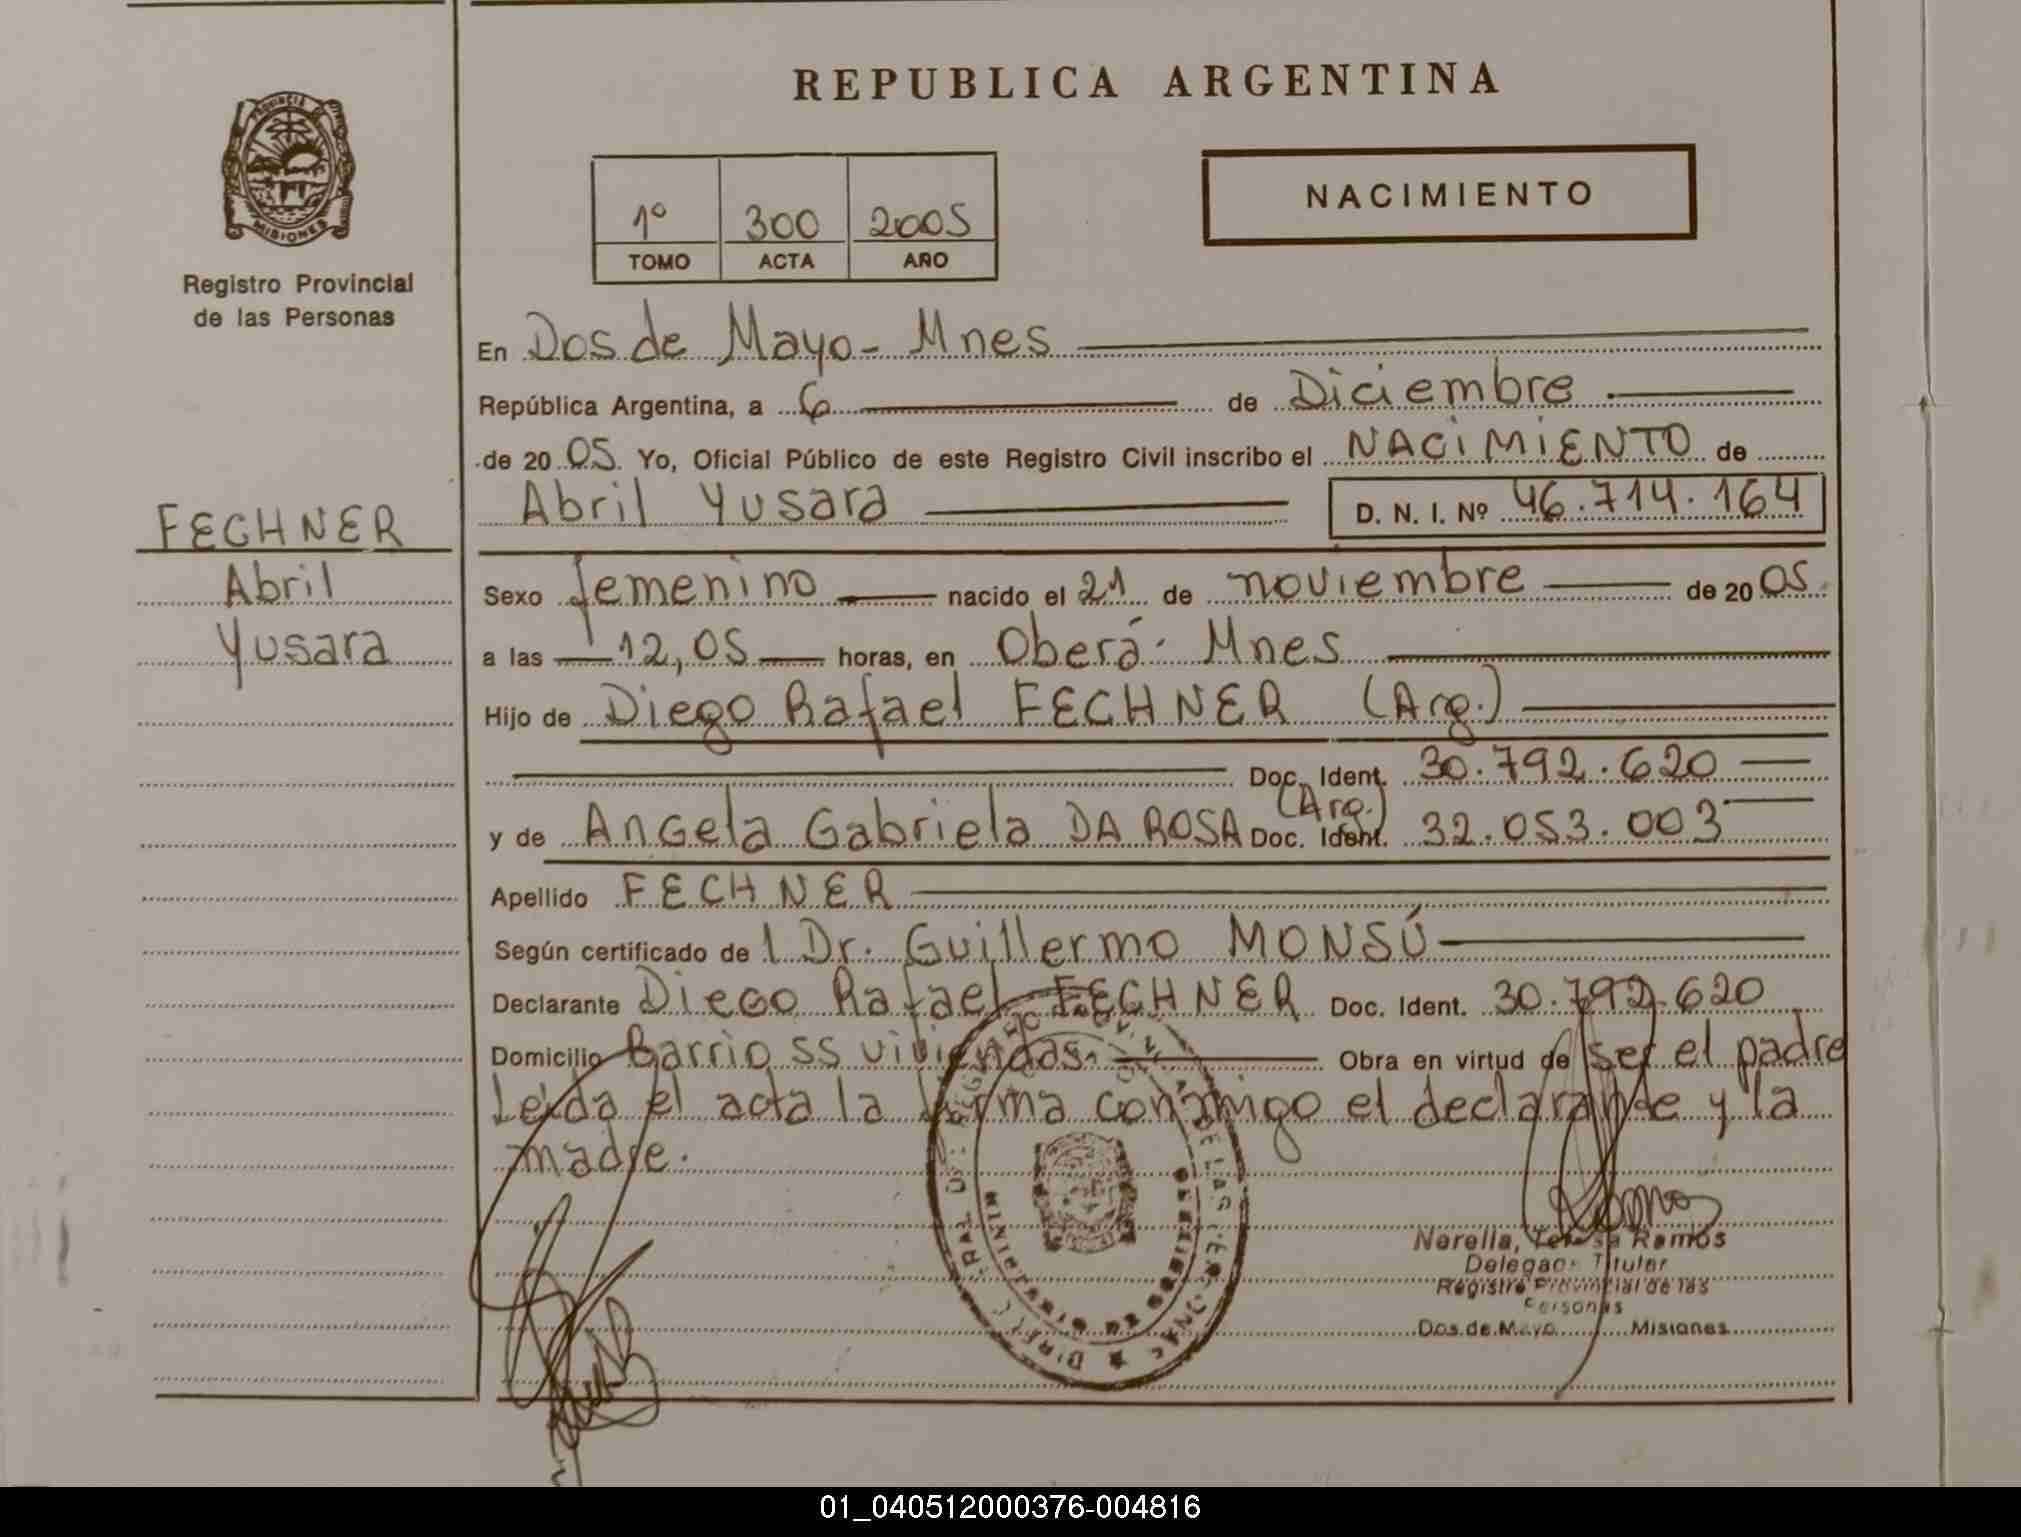 REPUBLICA ARGENTINA
PROVINCIA
MISIONES
Registro Provincial
de las Personas
1º 300 2005
TOMO ACTA AÑO
NACIMIENTO
En Dos de Mayo - Mnes
República Argentina, a 6 de Diciembre
de 20 05 Yo, Oficial Público de este Registro Civil inscribo el NACIMIENTO de
Abril Yusara D. N. I. Nº 46.714.164
FECHNER
Abril
Yusara
Sexo femenino nacido el 21 de noviembre de 20 05
a las 12,05 horas, en Oberá - Mnes
Hijo de Diego Rafael FECHNER (Arg.)
Doc. Ident. 30.792.620
y de Angela Gabriela DA ROSA (Arg.) Doc. Ident. 32.053.003
Apellido FECHNER
Según certificado de l Dr. Guillermo MONSÚ
Declarante Diego Rafael FECHNER Doc. Ident. 30.792.620
Domicilio Barrio 55 viviendas. Obra en virtud de ser el padre
Leída el acta la firma conmigo el declarante y la
madre.
Norella, Teresa Ramos
Delegada Titular
Registro Provincial de las
Personas
Dos de Mayo Misiones
01_040512000376-004816